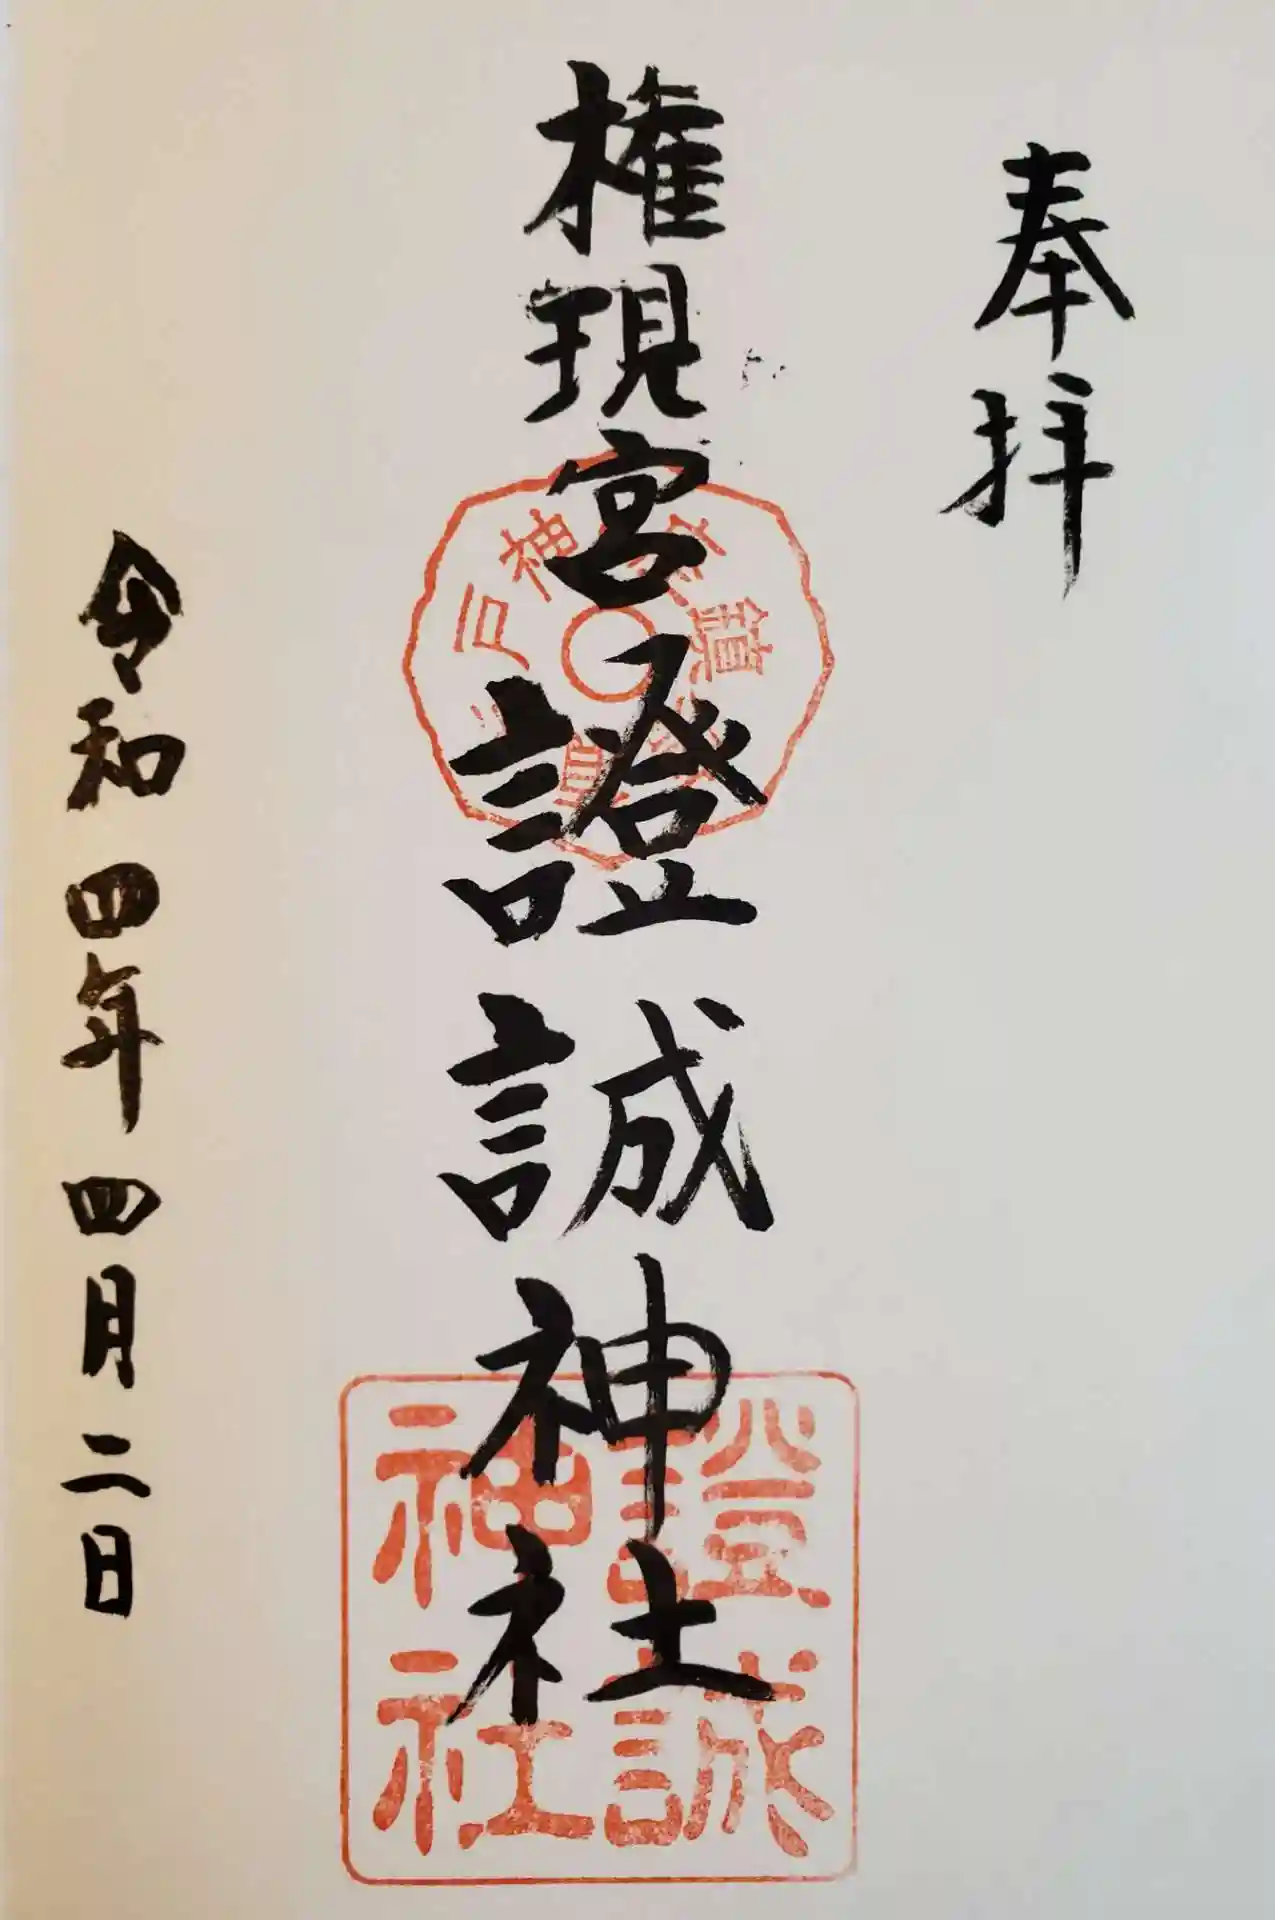 奉拝
権現宮 證誠神社
證誠
神社
令和四年四月二日